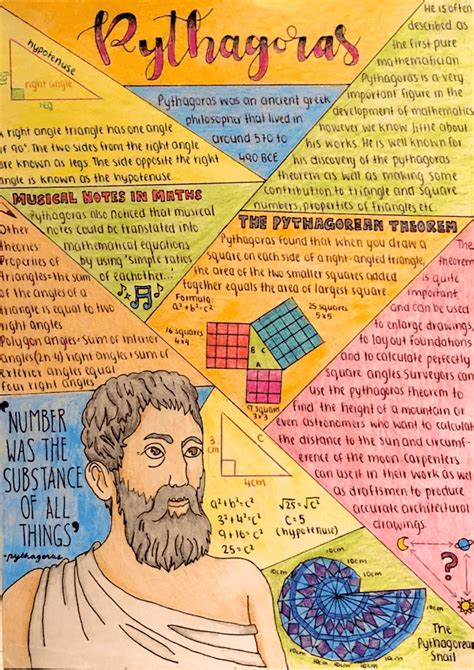 Pythagoras
hypotenuse
right angle
leg
leg
A right angle triangle has one angle
of 90°. The two sides from the right angle
are known as legs. The side opposite the right
angle is known as the hypotenuse.
Pythagoras was an ancient greek
philosopher that lived in
around 570 to
490 BCE
He is often
described as
the first pure
mathematician
Pythagoras is a very
important figure in the
development of mathematics
however we know little about
his works. He is well known for
his discovery of the pythagoras
theorem as well as making some
contribution to triangle and square
numbers, properties of triangles etc.
MUSICAL NOTES IN MATHS
Pythagoras also noticed that musical
notes could be translated into
mathematical equations
by using 'simple ratios
of eachother.'
Other
Theories:
Properties of
triangles=the sum
of the angles of a
triangle is equal to two
right angles
Polygon angles=Sum of interior
angles(2n-4) right angles+sum of
exterior angles equal
four right angles
THE PYTHAGOREAN THEOREM
Pythagoras found that when you draw a
square on each side of a right-angled triangle,
the area of the two smaller squares added
together equals the area of largest square.
Formula:
a²+b²=c²
25 squares
5x5
16 squares
4x4
B
C
A
9 squares
3x3
The
theorem
is quite
important
and can be used
to enlarge drawing
to layout foundations
and to calculate perfectly
square angles Surveyors
use the pythagoras theorem to
find the height of a mountain or
even astronomers who want to calculate
the distance to the sun and circumf-
erence of the moon. Carpenters
can use it in their work as well
as draftsmen to produce
accurate architectural
drawings.
"NUMBER
WAS THE
SUBSTANCE
OF ALL
THINGS"
-pythagoras
3
cm
4cm
a²+b²=c²
3²+4²=c²
9+16=c²
25=c²
√25=√c²
C=5
(hypotenuse)
10cm
10cm
10cm
10cm
10cm
10cm
10cm
10cm
?
The
Pythagorean
Snail